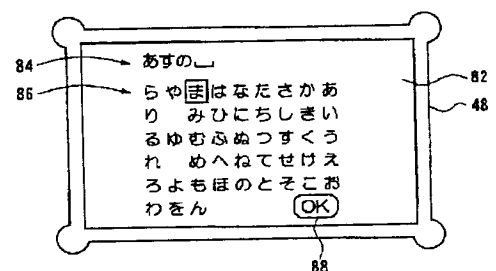 84
あすの
82
86
らやまはなたさかあ
48
り みひにちしきい
るゆむふぬつすくう
れ めへねてせけえ
ろよもほのとそこお
わをん OK
88